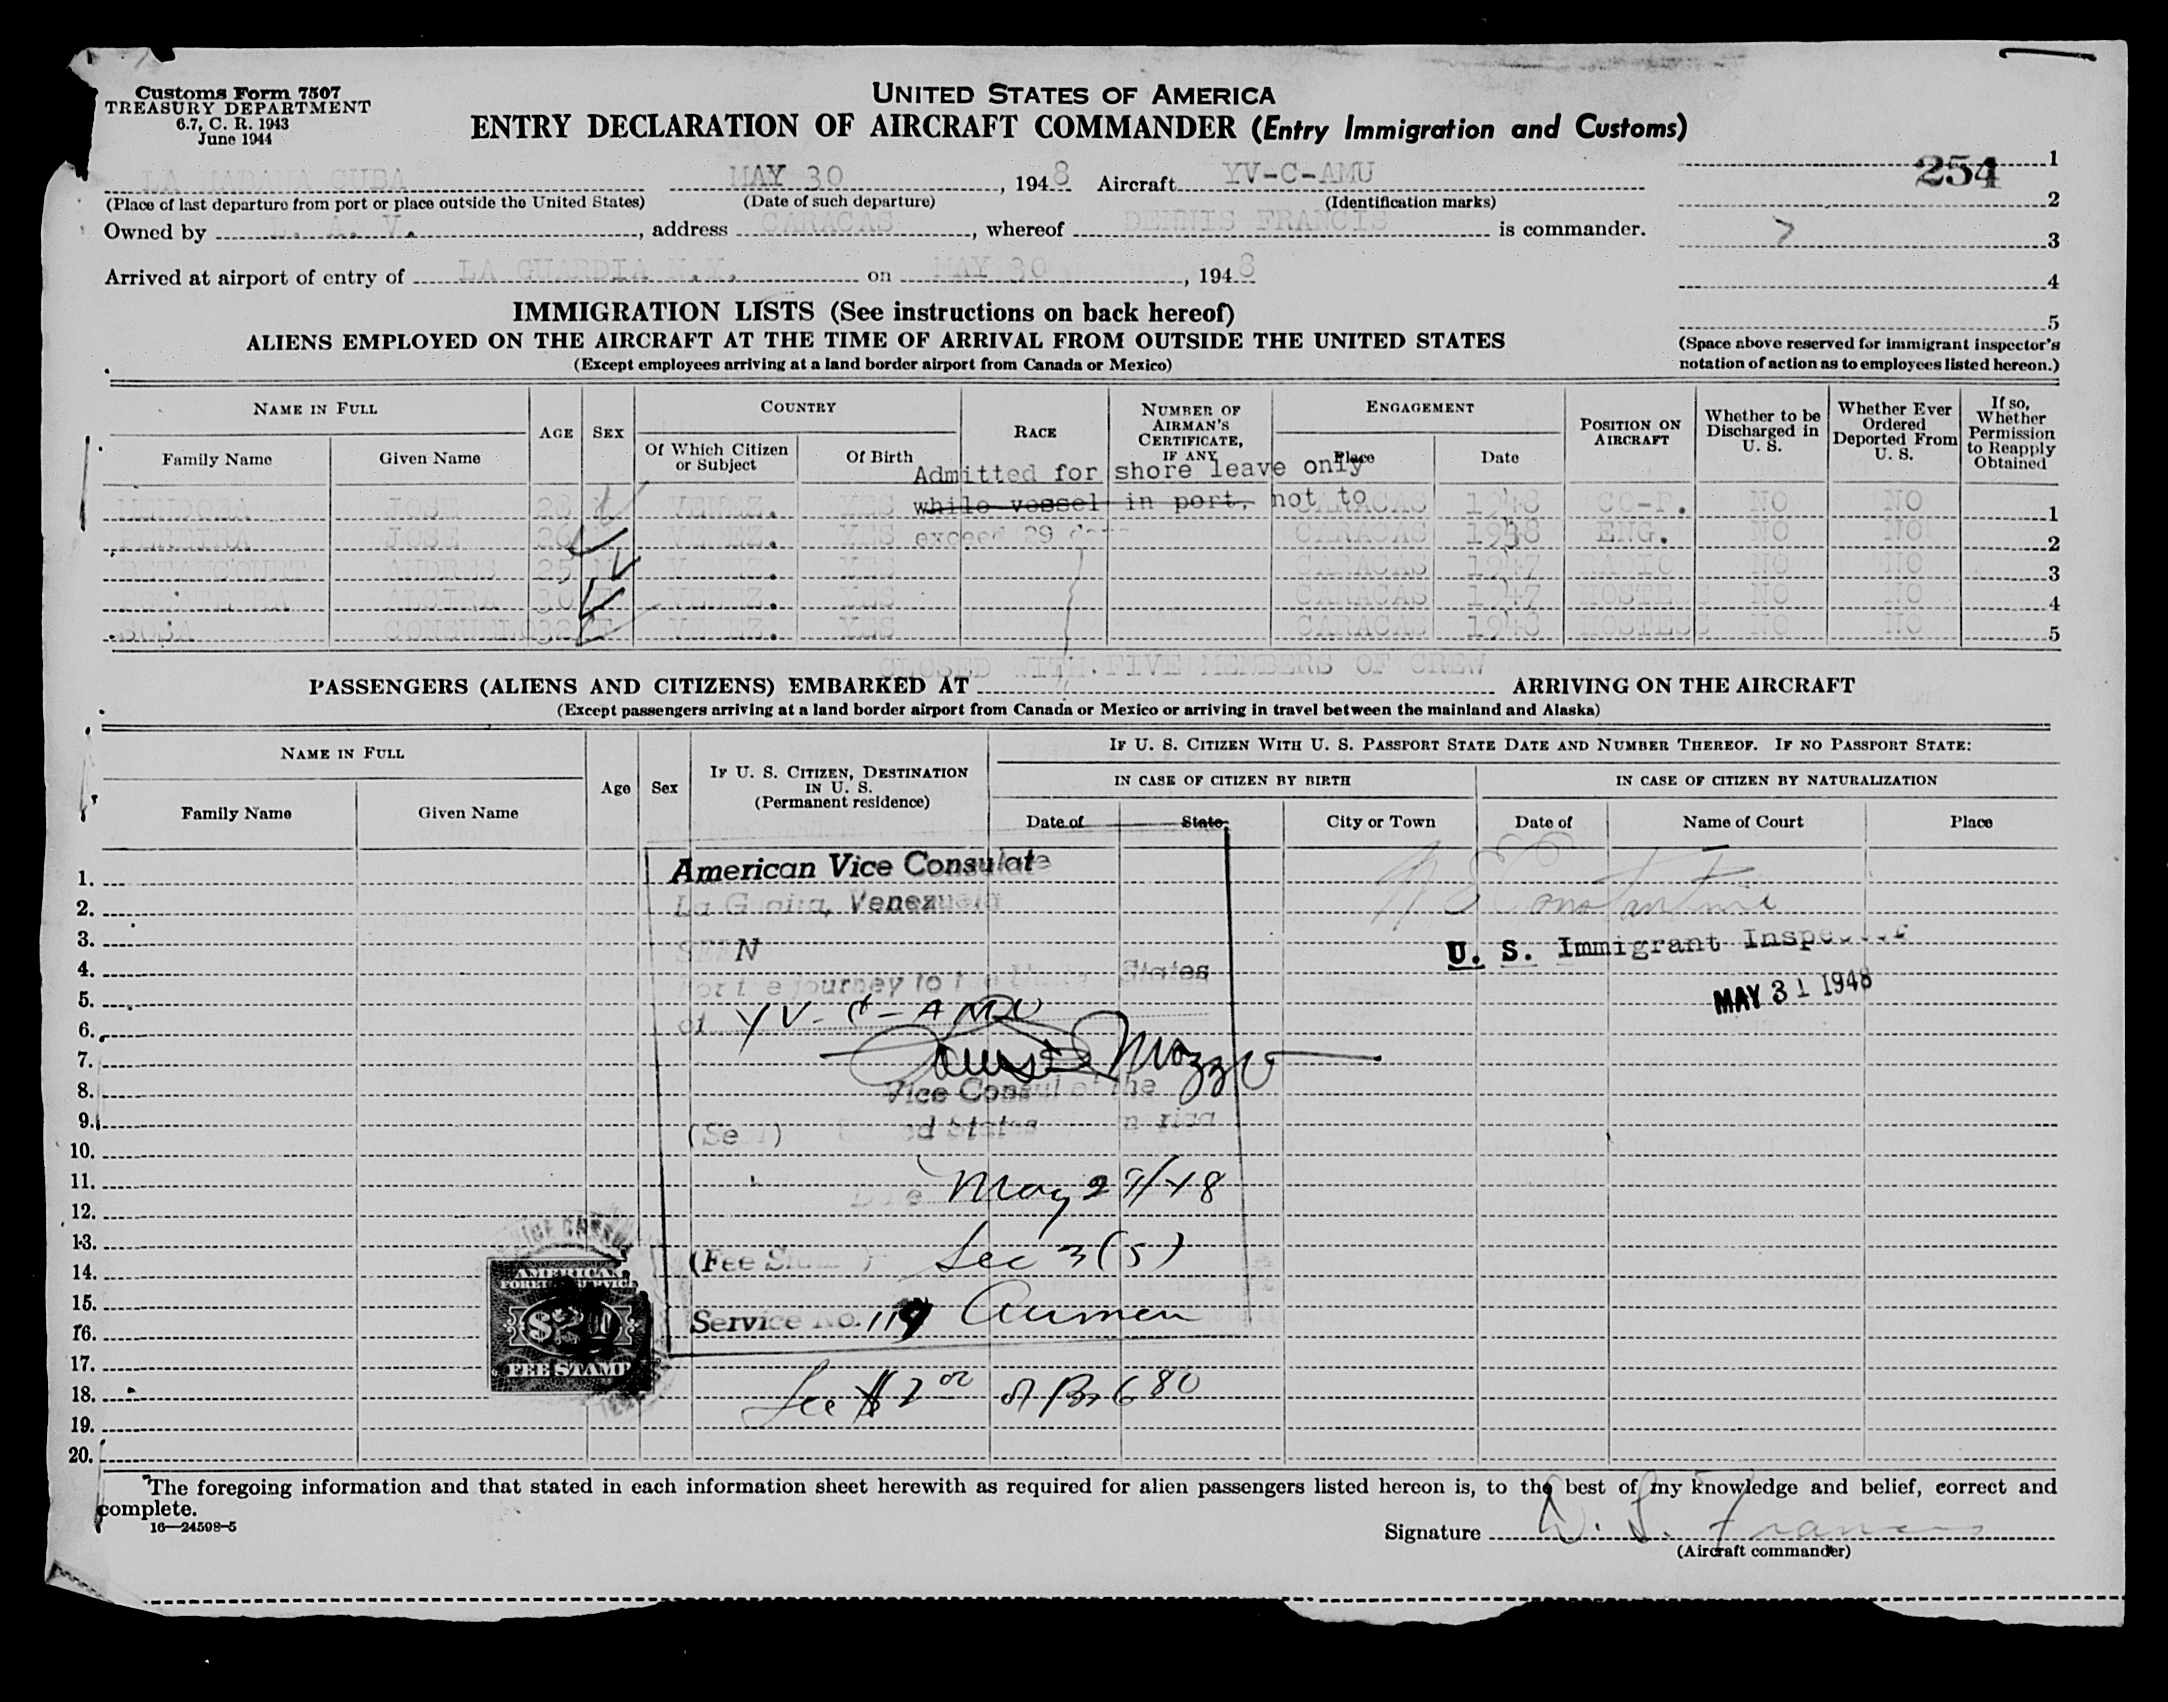 Customs Form 7507
TREASURY DEPARTMENT
6.7, C. R. 1943
June 1944
UNITED STATES OF AMERICA
ENTRY DECLARATION OF AIRCRAFT COMMANDER (Entry Immigration and Customs)
254
LA HABANA CUBA MAY 30, 1948 Aircraft YV-C-AMU
(Place of last departure from port or place outside the United States) (Date of such departure) (Identification marks)
Owned by L. A. V., address CARACAS, whereof DENNIS FRANCIS is commander.
Arrived at airport of entry of LA GUARDIA N.Y. on MAY 30, 1948
1
2
3
4
5
(Space above reserved for immigrant inspector's
notation of action as to employees listed hereon.)
IMMIGRATION LISTS (See instructions on back hereof)
ALIENS EMPLOYED ON THE AIRCRAFT AT THE TIME OF ARRIVAL FROM OUTSIDE THE UNITED STATES
(Except employees arriving at a land border airport from Canada or Mexico)
NAME IN FULL
Family Name Given Name
AGE SEX
COUNTRY
Of Which Citizen or Subject Of Birth
RACE
NUMBER OF AIRMAN'S CERTIFICATE, IF ANY
ENGAGEMENT
Place Date
POSITION ON AIRCRAFT
Whether to be Discharged in U. S.
Whether Ever Ordered Deported From U. S.
If so, Whether Permission to Reapply Obtained
Admitted for shore leave only
while vessel in port, not to
exceed 29 days
JOSE VENEZ. YES CARACAS 1948 CO-P. NO NO 1
JOSE VENEZ. YES CARACAS 1948 ENG. NO NO 2
BETANCOURT ANDRES 25 VENEZ. YES CARACAS 1947 RADIO NO NO 3
ALCIRA 30 VENEZ. YES CARACAS 1947 HOSTESS NO NO 4
SOSA CONSUELO VENEZ. YES CARACAS 1948 HOSTESS NO NO 5
CLOSED WITH FIVE MEMBERS OF CREW
PASSENGERS (ALIENS AND CITIZENS) EMBARKED AT ARRIVING ON THE AIRCRAFT
(Except passengers arriving at a land border airport from Canada or Mexico or arriving in travel between the mainland and Alaska)
NAME IN FULL
Family Name Given Name
Age Sex
IF U. S. CITIZEN, DESTINATION IN U. S. (Permanent residence)
IF U. S. CITIZEN WITH U. S. PASSPORT STATE DATE AND NUMBER THEREOF. IF NO PASSPORT STATE:
IN CASE OF CITIZEN BY BIRTH IN CASE OF CITIZEN BY NATURALIZATION
Date of State City or Town Date of Name of Court Place
1.
2.
3.
4.
5.
6.
7.
8.
9.
10.
11.
12.
13.
14.
15.
16.
17.
18.
19.
20.
American Vice Consulate
La Guaira, Venezuela
SEEN
For the journey to the United States
of YV-C-AMU
Vice Consul of the
United States of America
(Seal)
Date May 29/48
(Fee Stamp) Sec 3(5)
Service No. 119 Airmen
Fee $2.00 or Bs 6.80
AMERICAN
FOREIGN SERVICE
$2.00
FEE STAMP
Constantine
U. S. Immigrant Inspector
MAY 31 1948
The foregoing information and that stated in each information sheet herewith as required for alien passengers listed hereon is, to the best of my knowledge and belief, correct and
complete.
16—24598-5
Signature D. S. Francis
(Aircraft commander)